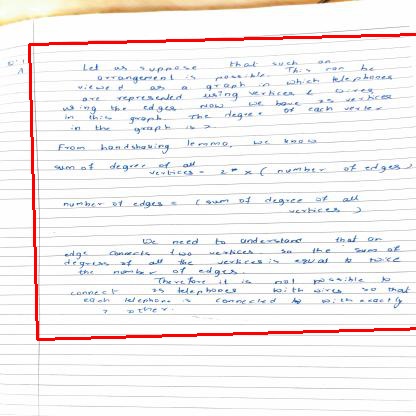 Let us suppose that such an
arrangement is possible. This can be
viewed as a graph in which telephones
are represented using vertices & wires
using the edges Now we have 25 vertices
in this graph. The degree of each vertex
in the graph is 7
From handshaking lemma, we know
sum of degree of all
vertices = 2 * ( number of edges )
number of edges = ( sum of degree of all
vertices )
We need to understand that an
edge connects two vertices. So the sum of
degrees of all the vertices is equal to twice
the number of edges.
Therefore it is not possible to
connect 25 telephones with wires so that
each telephone is connected with exactly
7 other.